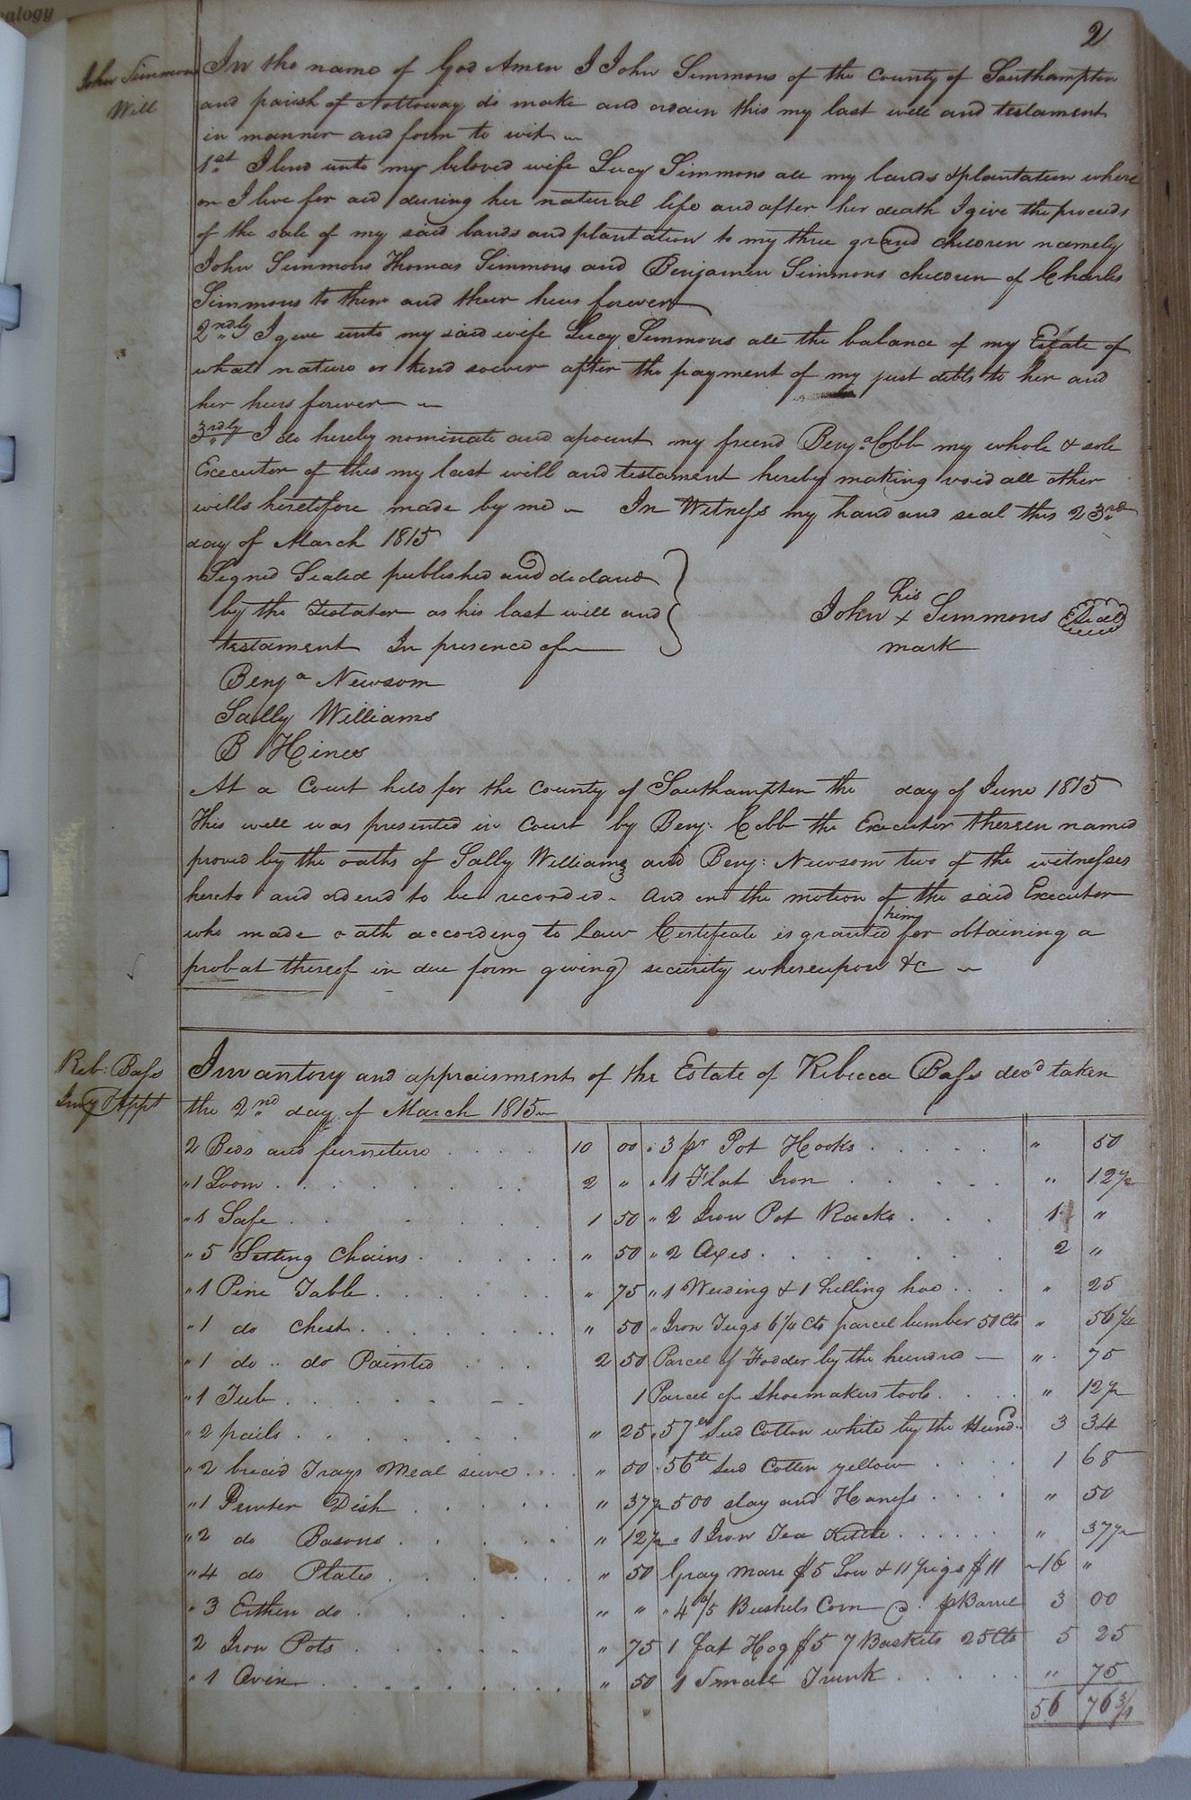 2
John Simmons
Will
In the name of God Amen I John Simmons of the County of Southampton
and parish of Nottoway do make and ordain this my last will and testament
in manner and form to wit
1st I lend unto my beloved wife Lucy Simmons all my lands & plantation where
on I live for and during her natural life and after her death I give the proceeds
of the sale of my said lands and plantation to my three grand children namely
John Simmons Thomas Simmons and Benjamin Simmons children of Charles
Simmons to them and their heirs forever
2ndly I give unto my said wife Lucy Simmons all the balance of my Estate of
what nature or kind soever after the payment of my just debts to her and
her heirs forever
3rdly I do hereby nominate and apount my friend Benja Cobb my whole & sole
Executor of this my last will and testament hereby making void all other
wills heretofore made by me In Witness my hand and seal this 23rd
day of March 1815
Signed Sealed published and declared
by the Testator as his last will and
testament In presence of
his
John x Simmons Seal
mark
Benja Newsom
Sally Williams
B Hines
At a Court held for the County of Southampton the day of June 1815
This will was presented in Court by Benj: Cobb the Executor therein named
proved by the oaths of Sally Williams and Benj: Newsom two of the witnesses
hereto and ordered to be recorded. And on the motion of the said Executor
who made oath according to law Certificate is granted him for obtaining a
probat thereof in due form giving security whereupon &c
Reb: Bass
Invy Appt
Invantory and appraisment of the Estate of Rebecca Bass decd taken
the 2nd day of March 1815
2 Beds and furniture 10 00 " 3 pr Pot Hooks " 50
" 1 Loom 2 " " 1 Flat Iron " 12½
" 1 Safe 1 50 " 2 Iron Pot Racks 1 "
" 5 Setting Chairs " 50 " 2 Axes 2 "
" 1 Pine Table " 75 " 1 Weeding & 1 hilling hoe " 25
" 1 do Chest " 50 " Iron Tugs 6¼ Cts parcel lumber 50 Cts " 56¼
" 1 do .. do Painted 2 50 Parcel of Fodder by the hundred " 75
" 1 Tub 1 Parcel of Shoemakers tools " 12½
" 2 pails " 25 " 57 Seed Cotton white by the Hund 3 34
" 2 bread Trays Meal seive " 00 " 56 Seed Cotton yellow 1 68
" 1 Pewter Dish " 37½ 500 slay and Harness " 50
" 2 do Basons " 12½ " 1 Iron Tea Kettle " 37½
" 4 do Plates " 50 Gray mare $5 Sow & 11 pigs $11 16 "
" 3 Erthen do " " " 4 Bushels Corn @ Barrel 3 00
2 Iron Pots " 75 1 fat Hog $5 7 Baskets 25 Cts 5 25
" 1 Oven " 50 1 Small Trunk " 75
56 76¾